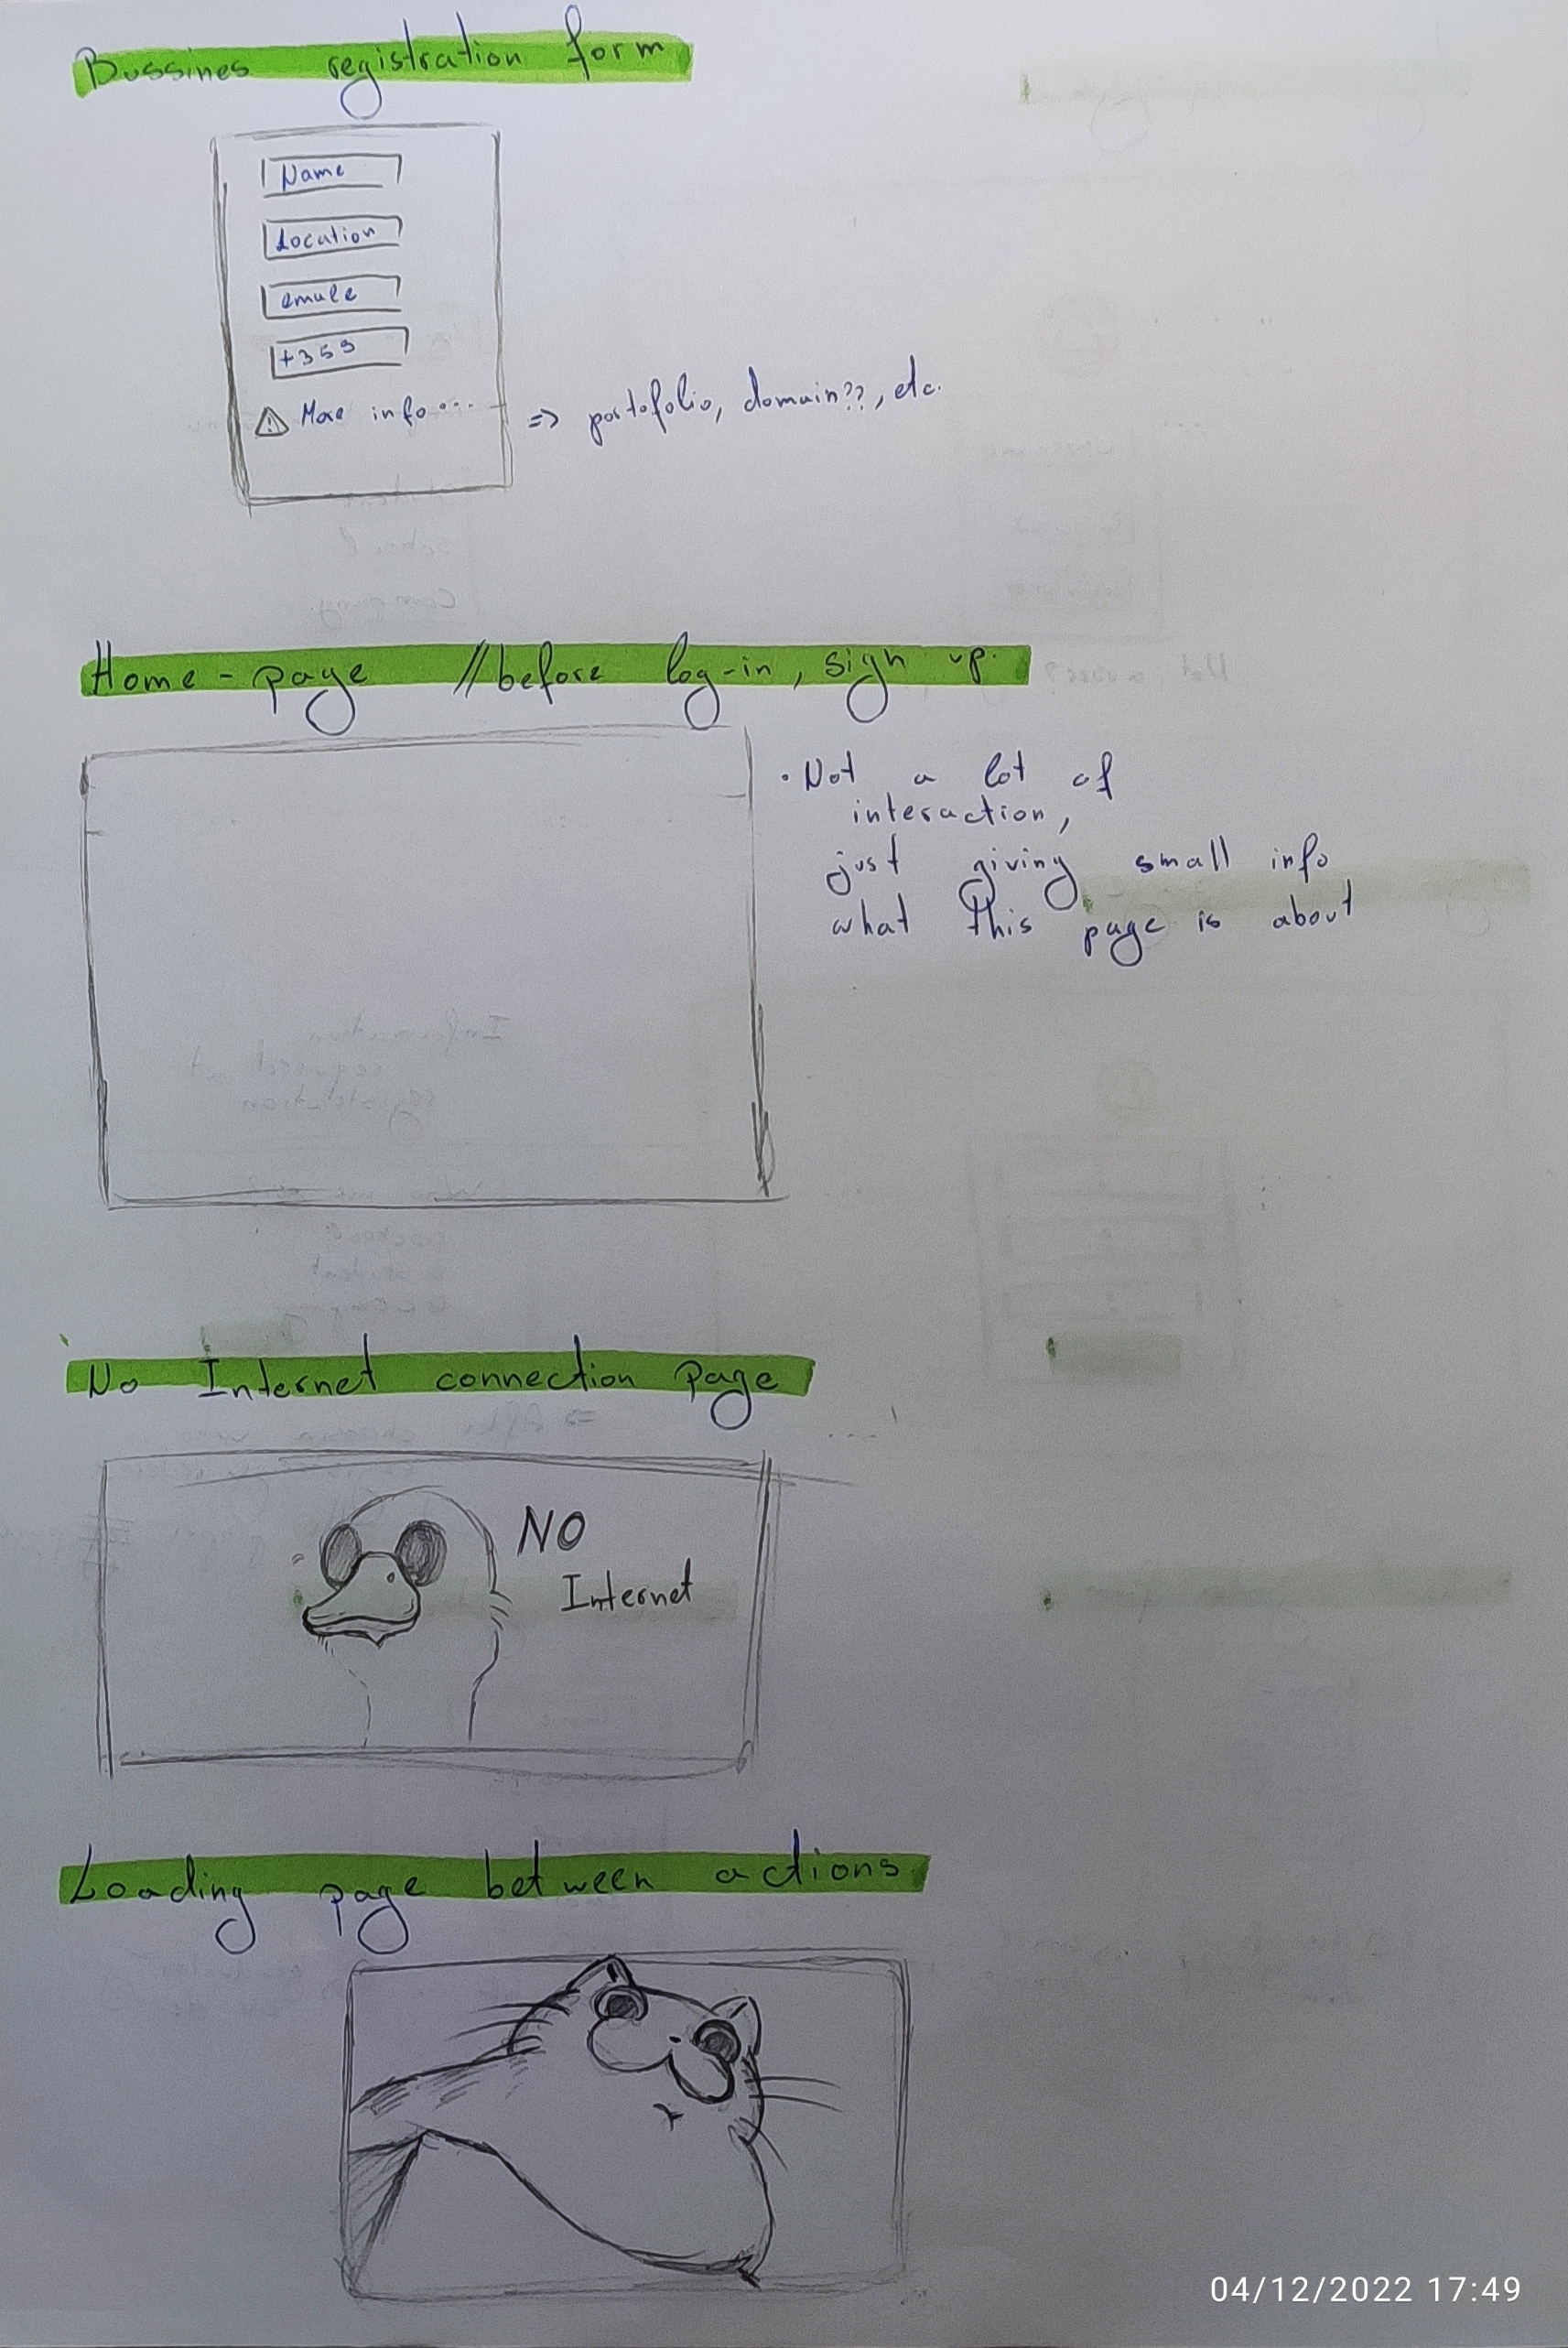 Bussines registration form
Name
Location
emale
+359
⚠ More info...
=> portofolio, domain??, etc.
Home-page //before log-in, sign up.
• Not a lot of
interaction,
just giving small info
what this page is about
No Internet connection page
NO
Internet
Loading page between actions
04/12/2022 17:49